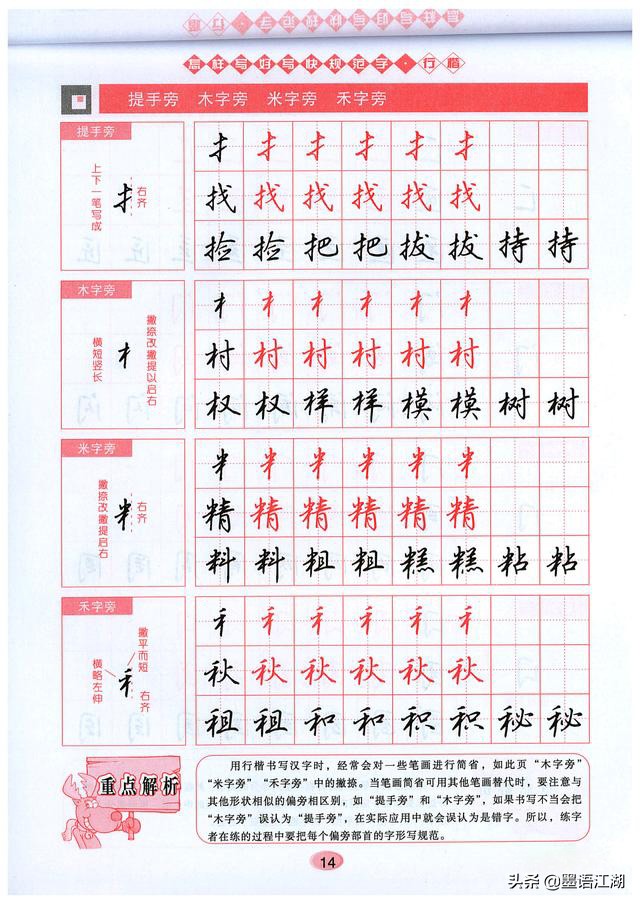 怎样写好写快规范字·行楷
提手旁 木字旁 米字旁 禾字旁
提手旁
上下一笔写成
扌
右齐
扌 扌 扌 扌 扌 扌
找 找 找 找 找 找
捡 捡 把 把 拔 拔 持 持
木字旁
横短竖长
木
撇捺改撇提以启右
木 木 木 木 木 木
村 村 村 村 村 村
权 权 样 样 模 模 树 树
米字旁
撇捺改撇提启右
米
右齐
米 米 米 米 米 米
精 精 精 精 精 精
料 料 粗 粗 糕 糕 粘 粘
禾字旁
横略左伸
禾
撇平而短
右齐
禾 禾 禾 禾 禾 禾
秋 秋 秋 秋 秋 秋
租 租 和 和 积 积 秘 秘
重点解析
用行楷书写汉字时，经常会对一些笔画进行简省，如此页“木字旁”
“米字旁”“禾字旁”中的撇捺。当笔画简省可用其他笔画替代时，要注意与
其他形状相似的偏旁相区别，如“提手旁”和“木字旁”，如果书写不当会把
“木字旁”误认为“提手旁”，在实际应用中就会误认为是错字。所以，练字
者在练的过程中要把每个偏旁部首的字形写规范。
14
头条@墨语江湖